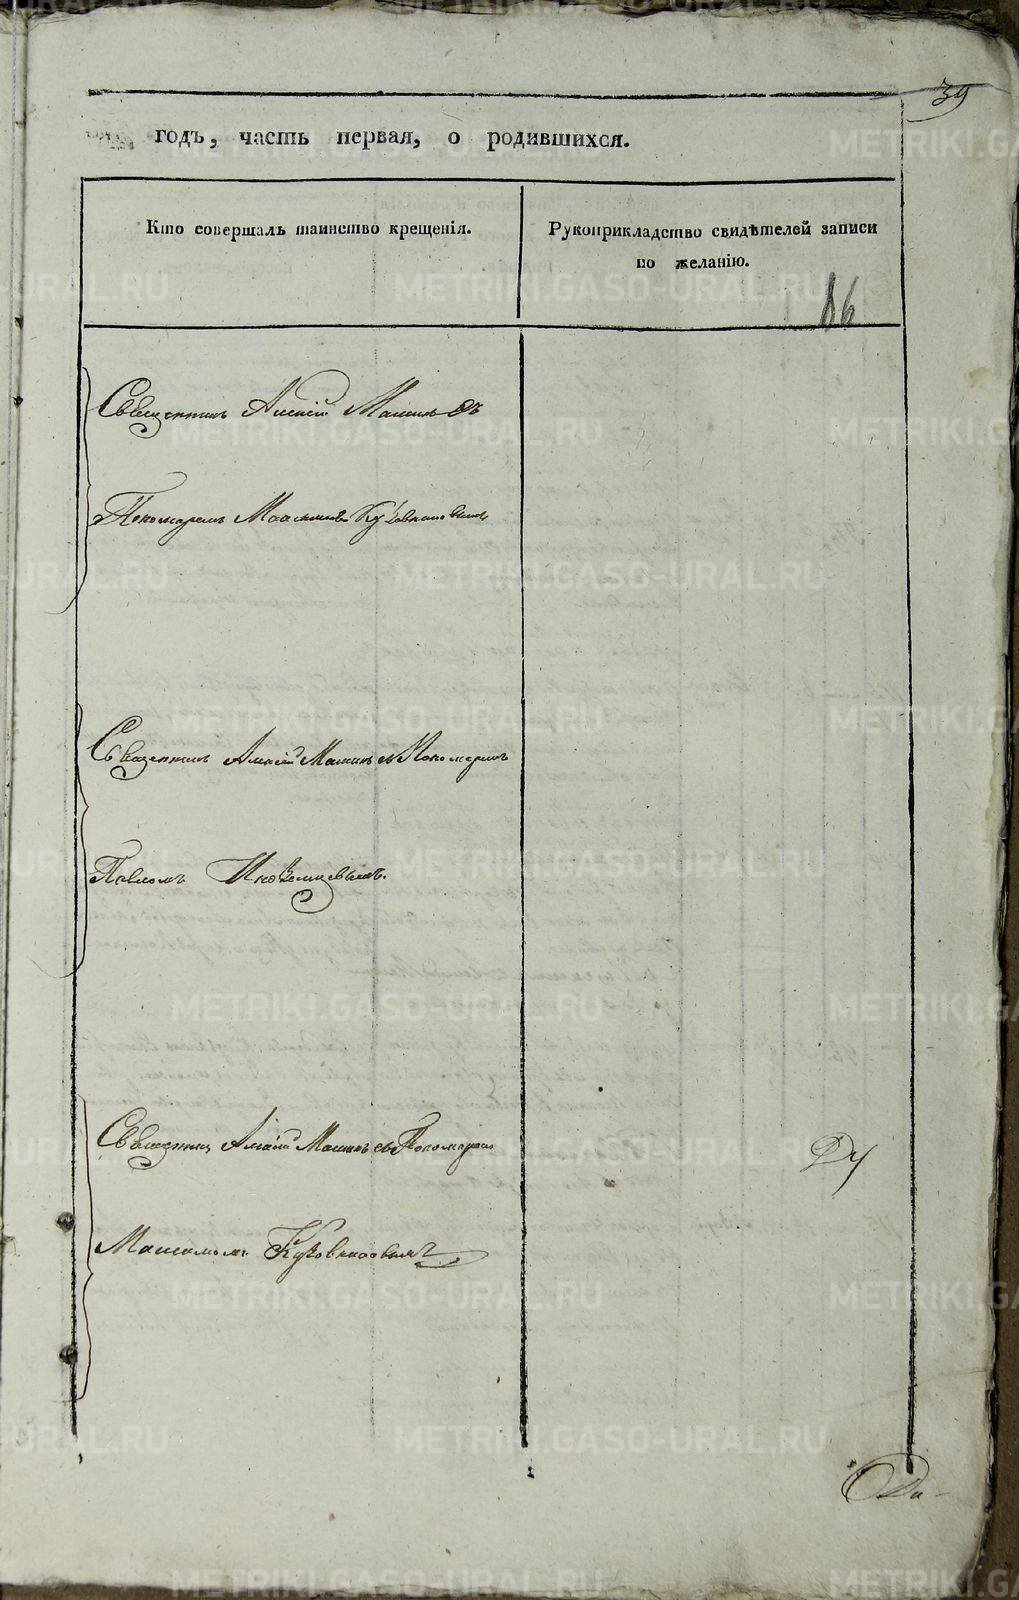 39
годъ, часть первая, о родившихся.
Кто совершалъ таинство крещенія.
Рукоприкладство свидѣтелей записи
по желанію.
86
Священник Алексій Машин съ
Пономарем Максимом
Священник Алексій Машин съ Пономарем
Павлом Иноземцевымъ.
Священник Алексій Машин съ Пономарем
Максимом
Ду
Ди
METRIKI.GASO-URAL.RU